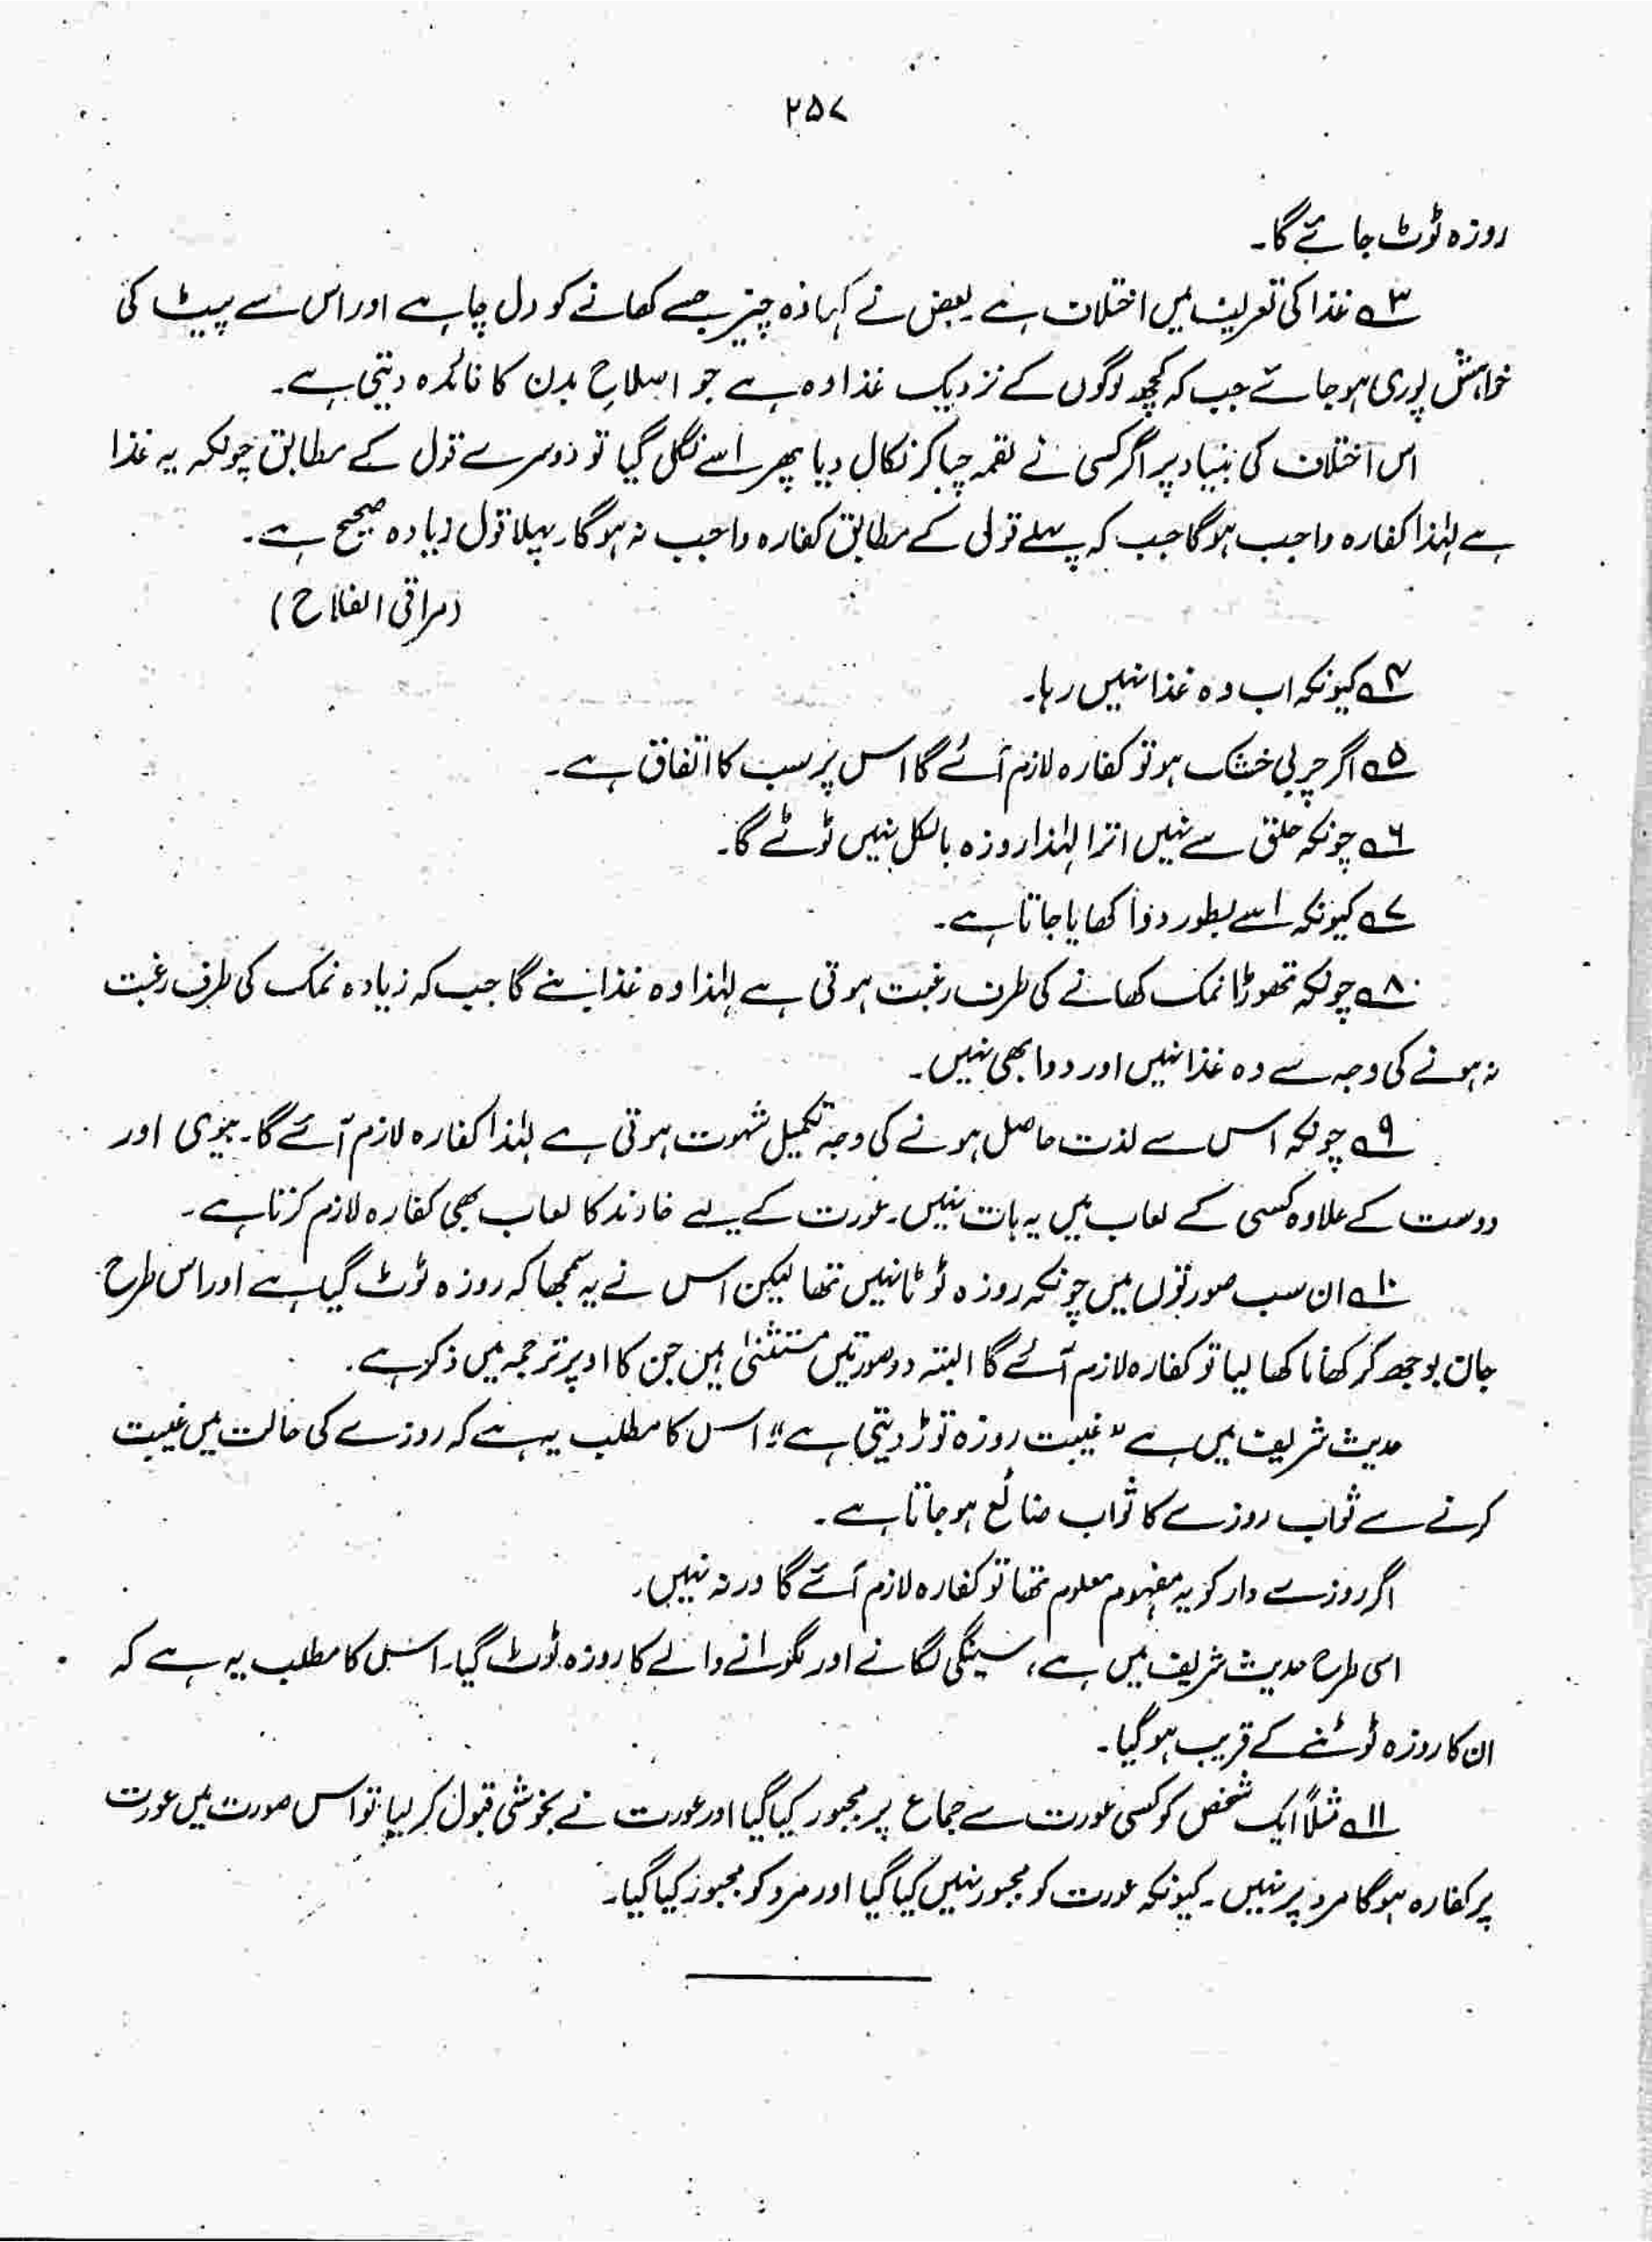 ۲۵۷
روزہ ٹوٹ جائے گا۔
۳؎ غذا کی تعریف میں اختلاف ہے۔ بعض نے کہا وہ چیز جسے کھانے کو دل چاہے اور اس سے پیٹ کی
خواہش پوری ہو جائے جب کہ کچھ لوگوں کے نزدیک غذا وہ ہے جو اصلاحِ بدن کا فائدہ دیتی ہے۔
اس اختلاف کی بنیاد پر اگر کسی نے لقمہ چبا کر نکال دیا پھر اسے نگل گیا تو دوسرے قول کے مطابق چونکہ یہ غذا
ہے لہٰذا کفارہ واجب ہو گا جب کہ پہلے قول کے مطابق کفارہ واجب نہ ہو گا۔ پہلا قول زیادہ صحیح ہے۔
(مراقی الفلاح)
۴؎ کیونکہ اب وہ غذا نہیں رہا۔
۵؎ اگر چربی خشک ہو تو کفارہ لازم آئے گا اس پر سب کا اتفاق ہے۔
۶؎ چونکہ حلق سے نہیں اترا لہٰذا روزہ بالکل نہیں ٹوٹے گا۔
۷؎ کیونکہ اسے بطور دوا کھایا جاتا ہے۔
۸؎ چونکہ تھوڑا نمک کھانے کی طرف رغبت ہوتی ہے لہٰذا وہ غذا بنے گا جب کہ زیادہ نمک کی طرف رغبت
نہ ہونے کی وجہ سے وہ غذا نہیں اور دوا بھی نہیں۔
۹؎ چونکہ اس سے لذت حاصل ہونے کی وجہ تکمیل شہوت ہوتی ہے لہٰذا کفارہ لازم آئے گا۔ بیوی اور
دوست کے علاوہ کسی کے لعاب میں یہ بات نہیں۔ عورت کے لیے خاوند کا لعاب بھی کفارہ لازم کرتا ہے۔
۱۰؎ ان سب صورتوں میں چونکہ روزہ ٹوٹا نہیں تھا لیکن اس نے یہ سمجھا کہ روزہ ٹوٹ گیا ہے اور اس طرح
جان بوجھ کر کھانا کھا لیا تو کفارہ لازم آئے گا البتہ دو صورتیں مستثنیٰ ہیں جن کا اوپر ترجمہ میں ذکر ہے۔
حدیث شریف میں ہے "غیبت روزہ توڑ دیتی ہے" اس کا مطلب یہ ہے کہ روزے کی حالت میں غیبت
کرنے سے ثواب روزے کا ثواب ضائع ہو جاتا ہے۔
اگر روزے دار کو یہ مفہوم معلوم تھا تو کفارہ لازم آئے گا ورنہ نہیں۔
اسی طرح حدیث شریف میں ہے، سینگی لگانے اور لگوانے والے کا روزہ ٹوٹ گیا۔ اس کا مطلب یہ ہے کہ
ان کا روزہ ٹوٹنے کے قریب ہو گیا۔
۱۱؎ مثلاً ایک شخص کو کسی عورت سے جماع پر مجبور کیا گیا اور عورت نے بخوشی قبول کر لیا تو اس صورت میں عورت
پر کفارہ ہو گا مرد پر نہیں۔ کیونکہ عورت کو مجبور نہیں کیا گیا اور مرد کو مجبور کیا گیا۔